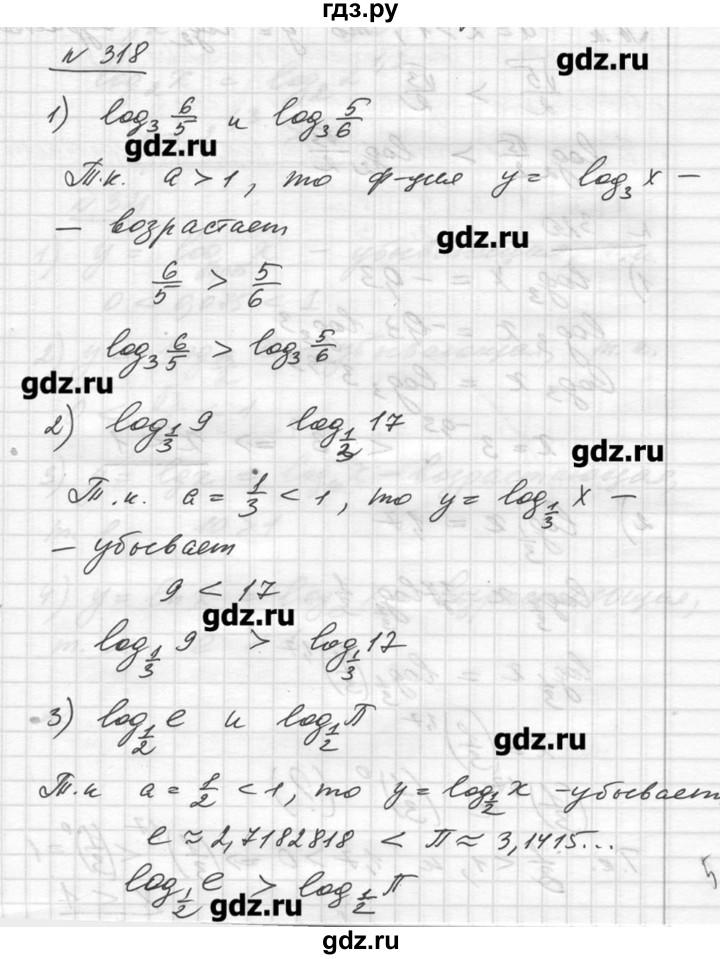 гдз.ру
N 318
gdz.ru
1) log₃ 6/5 и log₃ 5/6
gdz.ru
Т.к. a > 1, то ф-ция y = log₃ x –
– возрастает
gdz.ru
6/5 > 5/6
log₃ 6/5 > log₃ 5/6
gdz.ru
2) log_{1/3} 9 log_{1/3} 17
gdz.ru
Т.к. a = 1/3 < 1, то y = log_{1/3} x –
– убывает
9 < 17
gdz.ru
log_{1/3} 9 > log_{1/3} 17
3) log_{1/2} e и log_{1/2} π
gdz.ru
Т.к a = 1/2 < 1, то y = log_{1/2} x - убывает
e ≈ 2,7182818 < π ≈ 3,1415...
log_{1/2} e > log_{1/2} π
gdz.ru
gdz.ru